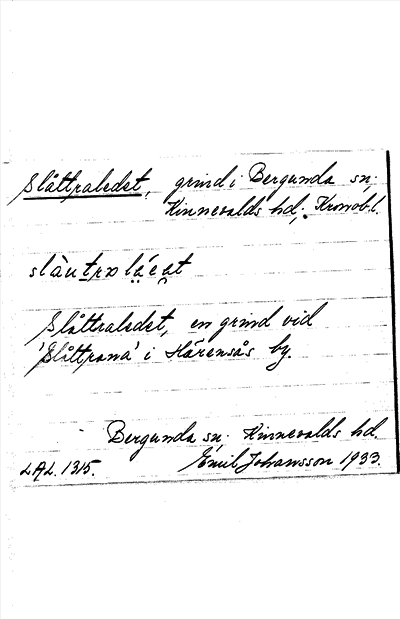 Slåttraledet, grind i Bergunda sn;
Kinnevalds hd; Kronob. l.
Slåttraledet, en grind vid
'Slåttrana' i Härensås by.
Bergunda sn; Kinnevalds hd.
LAL. 1315. Emil Johansson 1933.